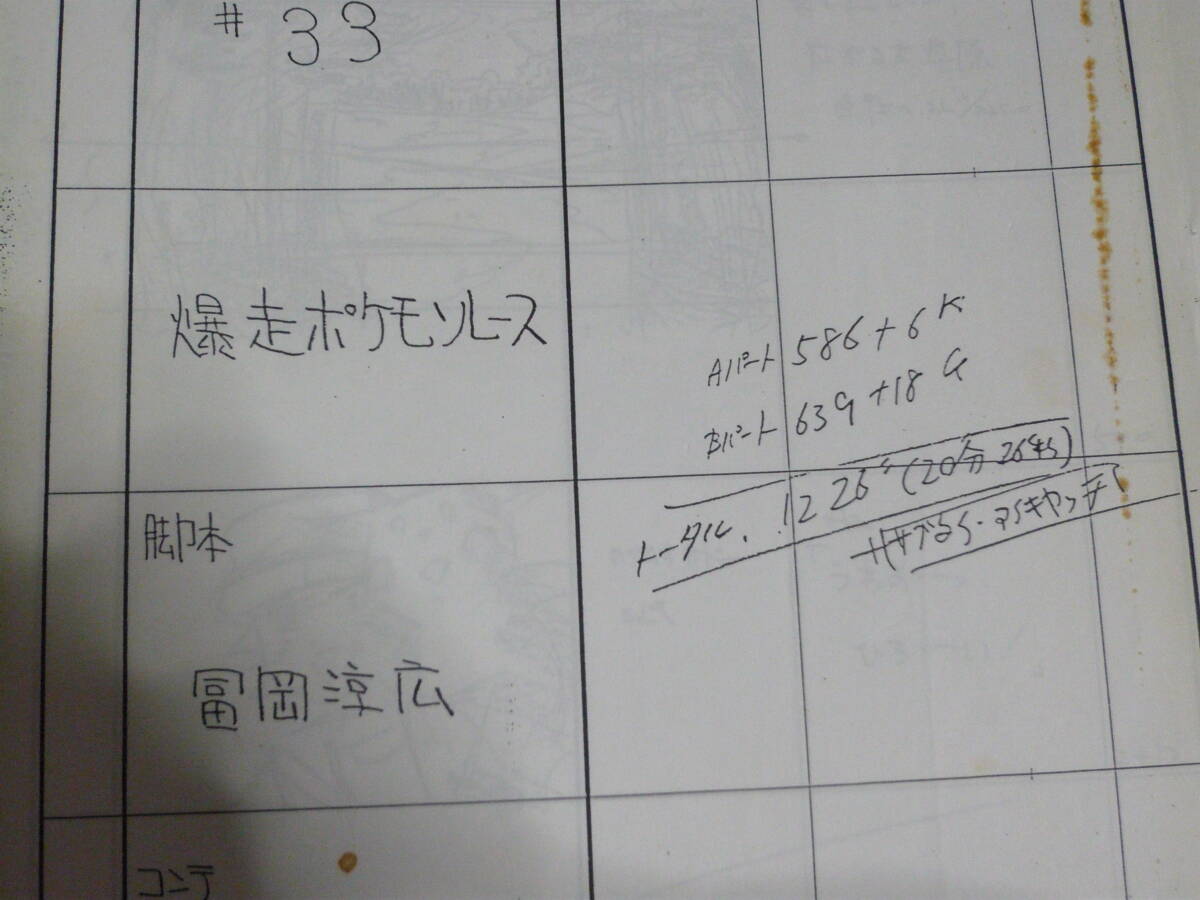 # 33
爆走ポケモンレース
Aパート 586+6K
Bパート 639+18K
トータル. 1226" (20分26秒)
脚本
冨岡淳広
コンテ